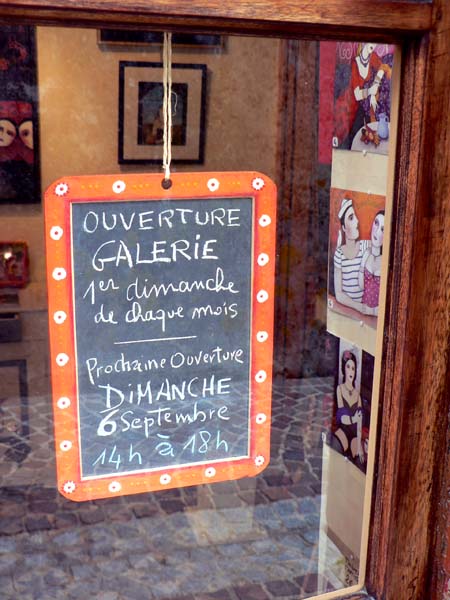 OUVERTURE
GALERIE
1er dimanche
de chaque mois
Prochaine Ouverture
DIMANCHE
6 Septembre
14h à 18h